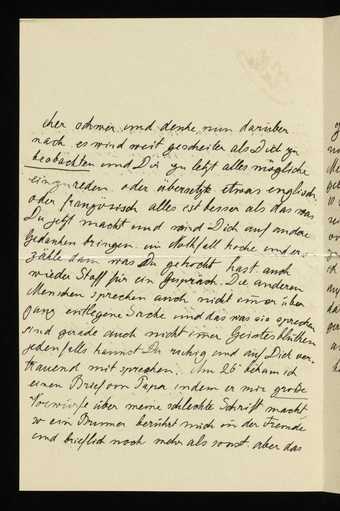 eher schwer und denke nun darüber
nach es wird weit gescheiter als Dich zu
beobachten und Dir zu letzt alles mögliche
einzureden oder übersetze etwas englisch
oder französisch alles ist besser als das was
Du jetzt machst und wird Dich auf andere
Gedanken bringen. im Nothfall koche und er-
zähle dann was Du gekocht hast auch
wieder Stoff für ein Gespräch. Die anderen
Menschen sprechen auch nicht immer über
ganz entlegene Sache und das was sie sprechen
sind gerade auch nicht immer Geistesblüthen
jedenfalls kannst Du ruhig und auf Dich ver-
trauend mit sprechen. Am 26t bekam ich
einen Brief von Papa indem er mir grobe
Vorwürfe über meine schlechte Schrift macht
so ein berührt mich in der Fremde
und brieflich noch mehr als sonst. aber das